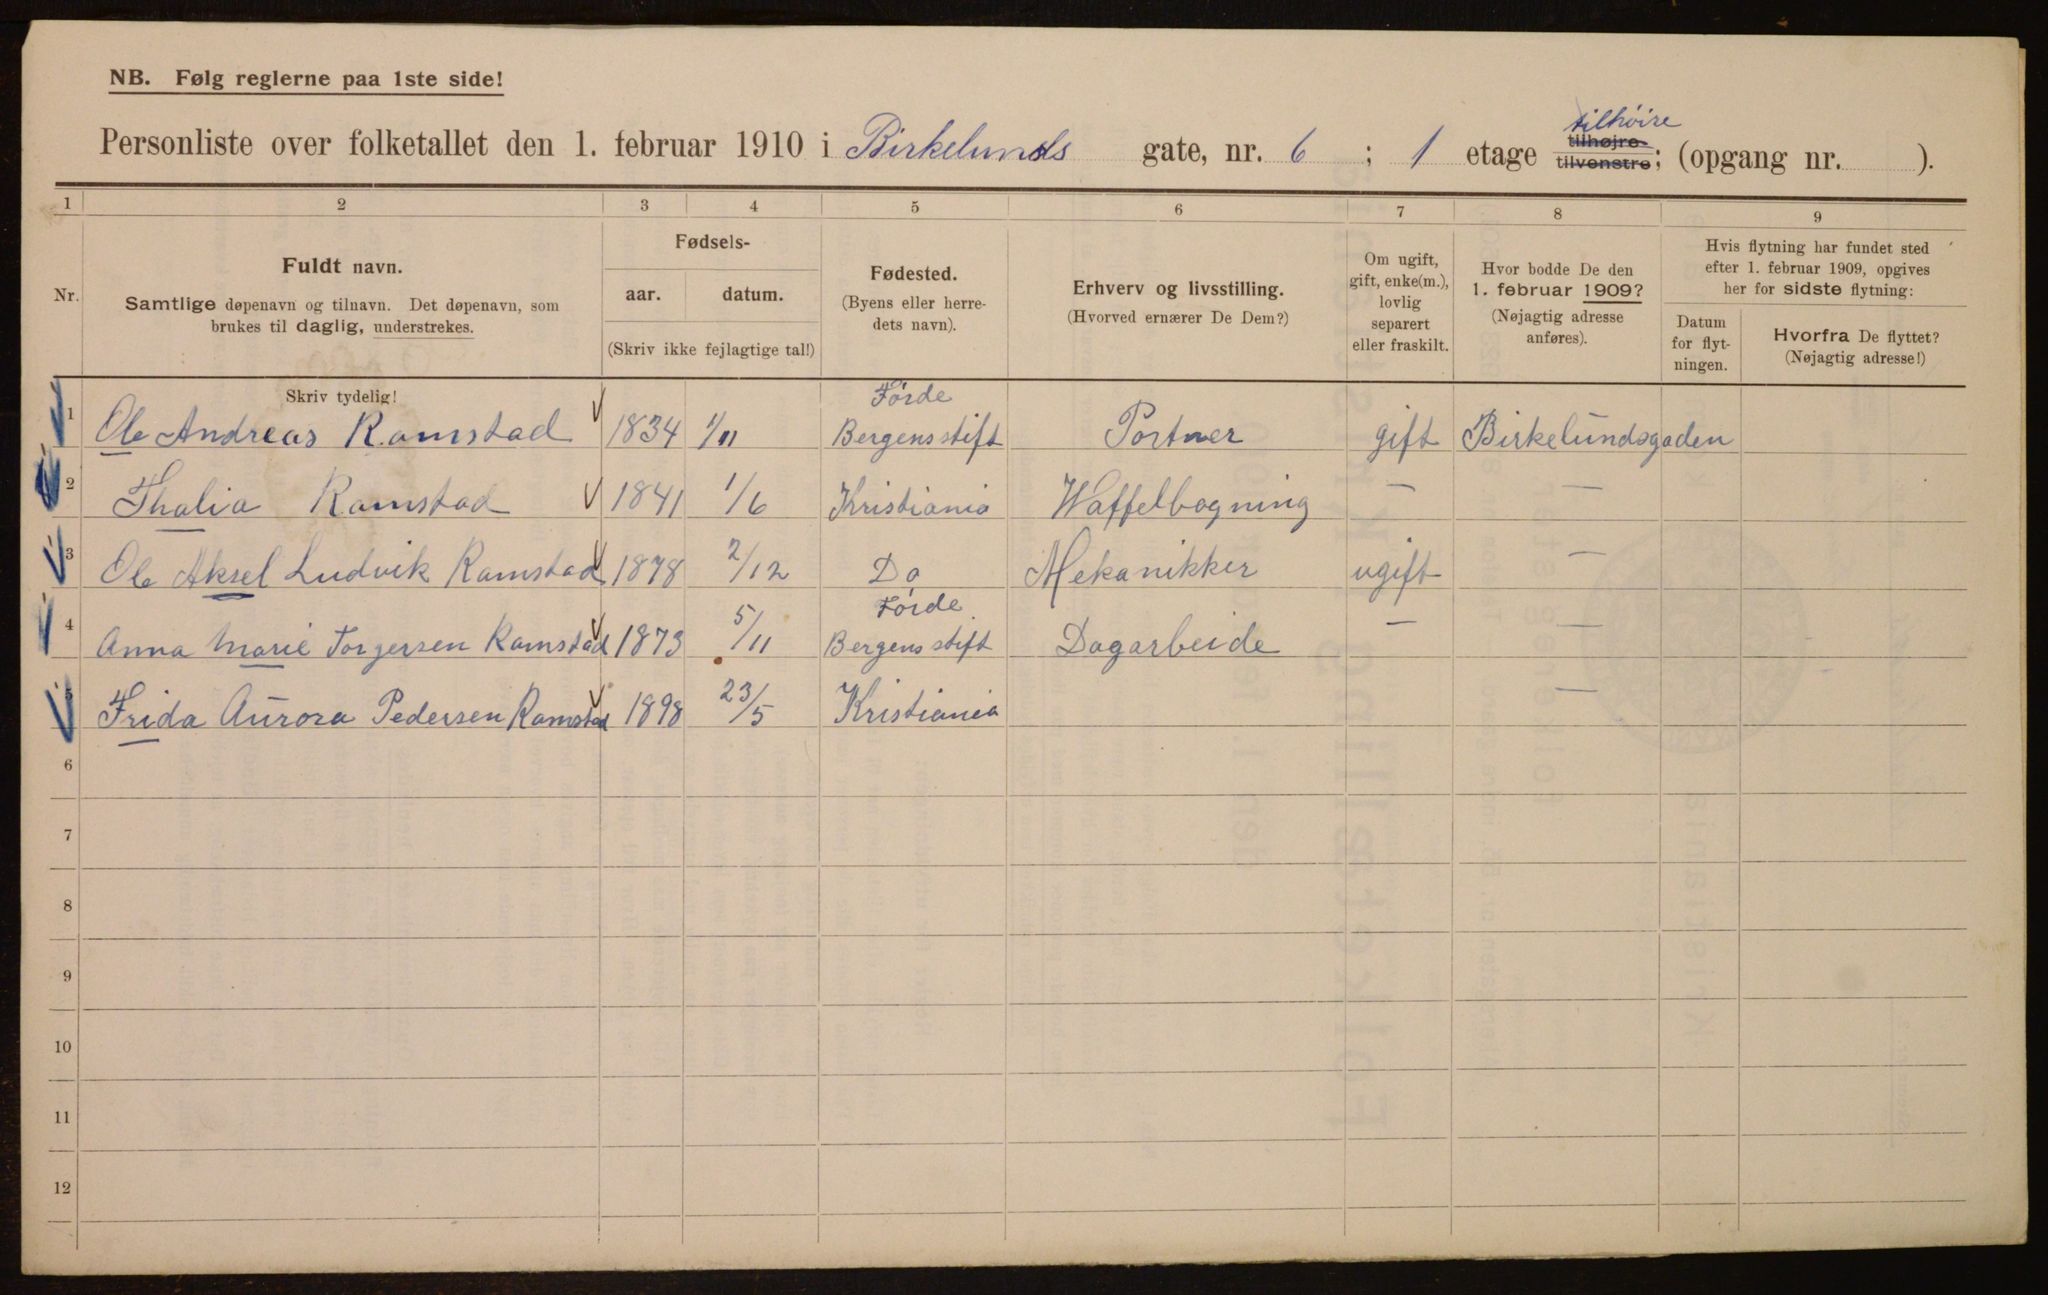 NB. Følg reglerne paa 1ste side!
Personliste over folketallet den 1. februar 1910 i Birkelunds gate, nr. 6 ; 1 etage tilhøire tilhøjre tilvenstre; (opgang nr. ).
1 2 3 4 5 6 7 8 9
Nr.
Fuldt navn.
Samtlige døpenavn og tilnavn. Det døpenavn, som
brukes til daglig, understrekes.
Skriv tydelig!
Fødsels-
aar. datum.
(Skriv ikke fejlagtige tal!)
Fødested.
(Byens eller herre-
dets navn).
Erhverv og livsstilling.
(Hvorved ernærer De Dem?)
Om ugift,
gift, enke(m.),
lovlig
separert
eller fraskilt.
Hvor bodde De den
1. februar 1909?
(Nøjagtig adresse
anføres).
Hvis flytning har fundet sted
efter 1. februar 1909, opgives
her for sidste flytning:
Datum
for flyt-
ningen.
Hvorfra De flyttet?
(Nøjagtig adresse!)
Førde
1 Ole Andreas Ramstad 1834 1/11 Bergens stift Portner gift Birkelundsgaden
2 Thalia Ramstad 1841 1/6 Kristiania Waffelbagning — —
3 Ole Aksel Ludvik Ramstad 1878 2/12 Do Mekanikker ugift —
Førde
4 Anna Marie Torgersen Ramstad 1873 5/11 Bergens stift Dagarbeide — —
5 Frida Aurora Pedersen Ramstad 1898 23/5 Kristiania —
6
7
8
9
10
11
12